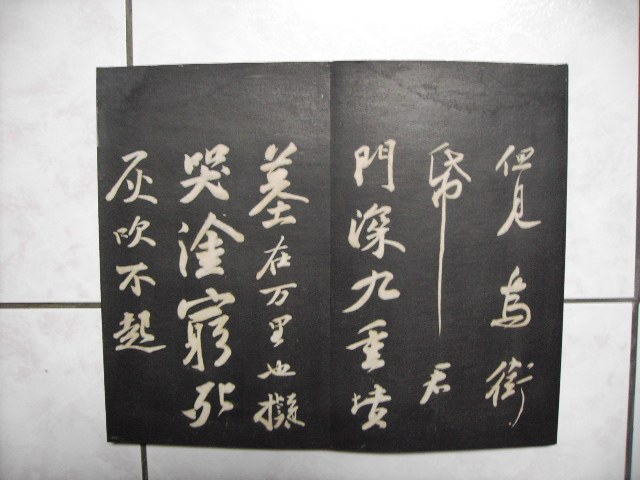 但見烏銜
帋君
門深九重墳
墓在万里也擬
哭塗窮死
灰吹不起